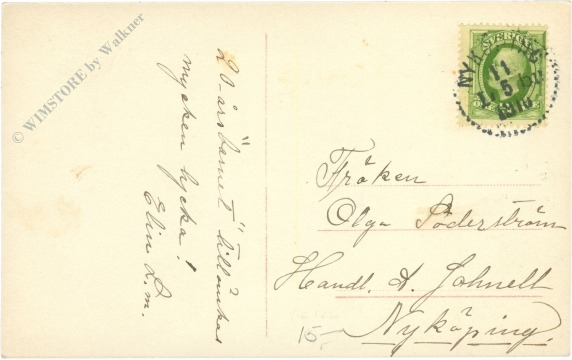 © WIMSTORE by Walkner
20-årsbarnet tillönskas
mycken lycka!
Elin L.m.
SVERIGE
NYKÖPING
11
5
1910
Fröken
Olga Söderström
Handl. A. Johnell
Nyköping.
15,-